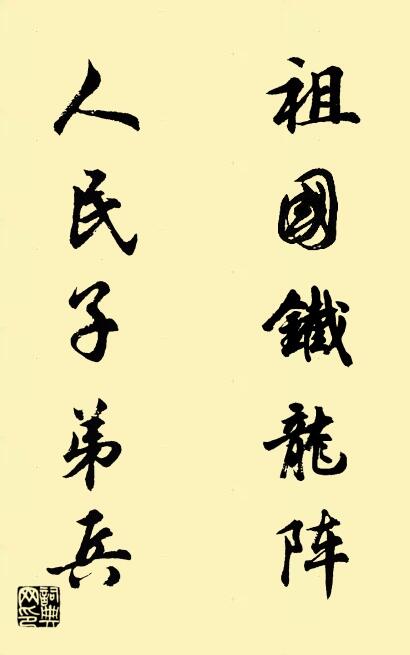 祖國鐵龍阵
人民子弟兵
詞典
网印